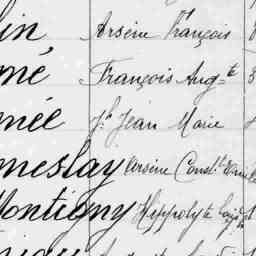 lin Arsène François
mé François Aug.te
mée J.h Jean Marie
meslay Arsène Const.t
Montigny Hippolyte